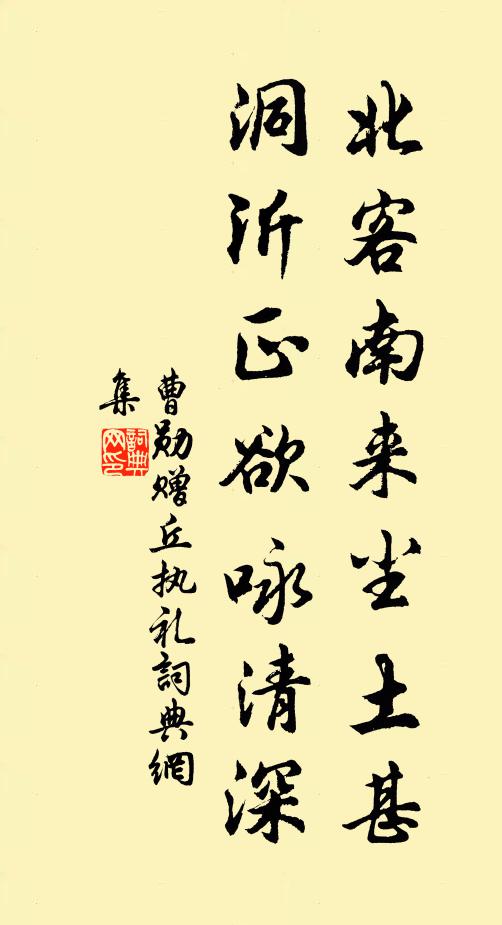 北客南来尘土甚
洞沂正欲咏清深
曹勋赠丘执礼詞典網
集
詞典
网印